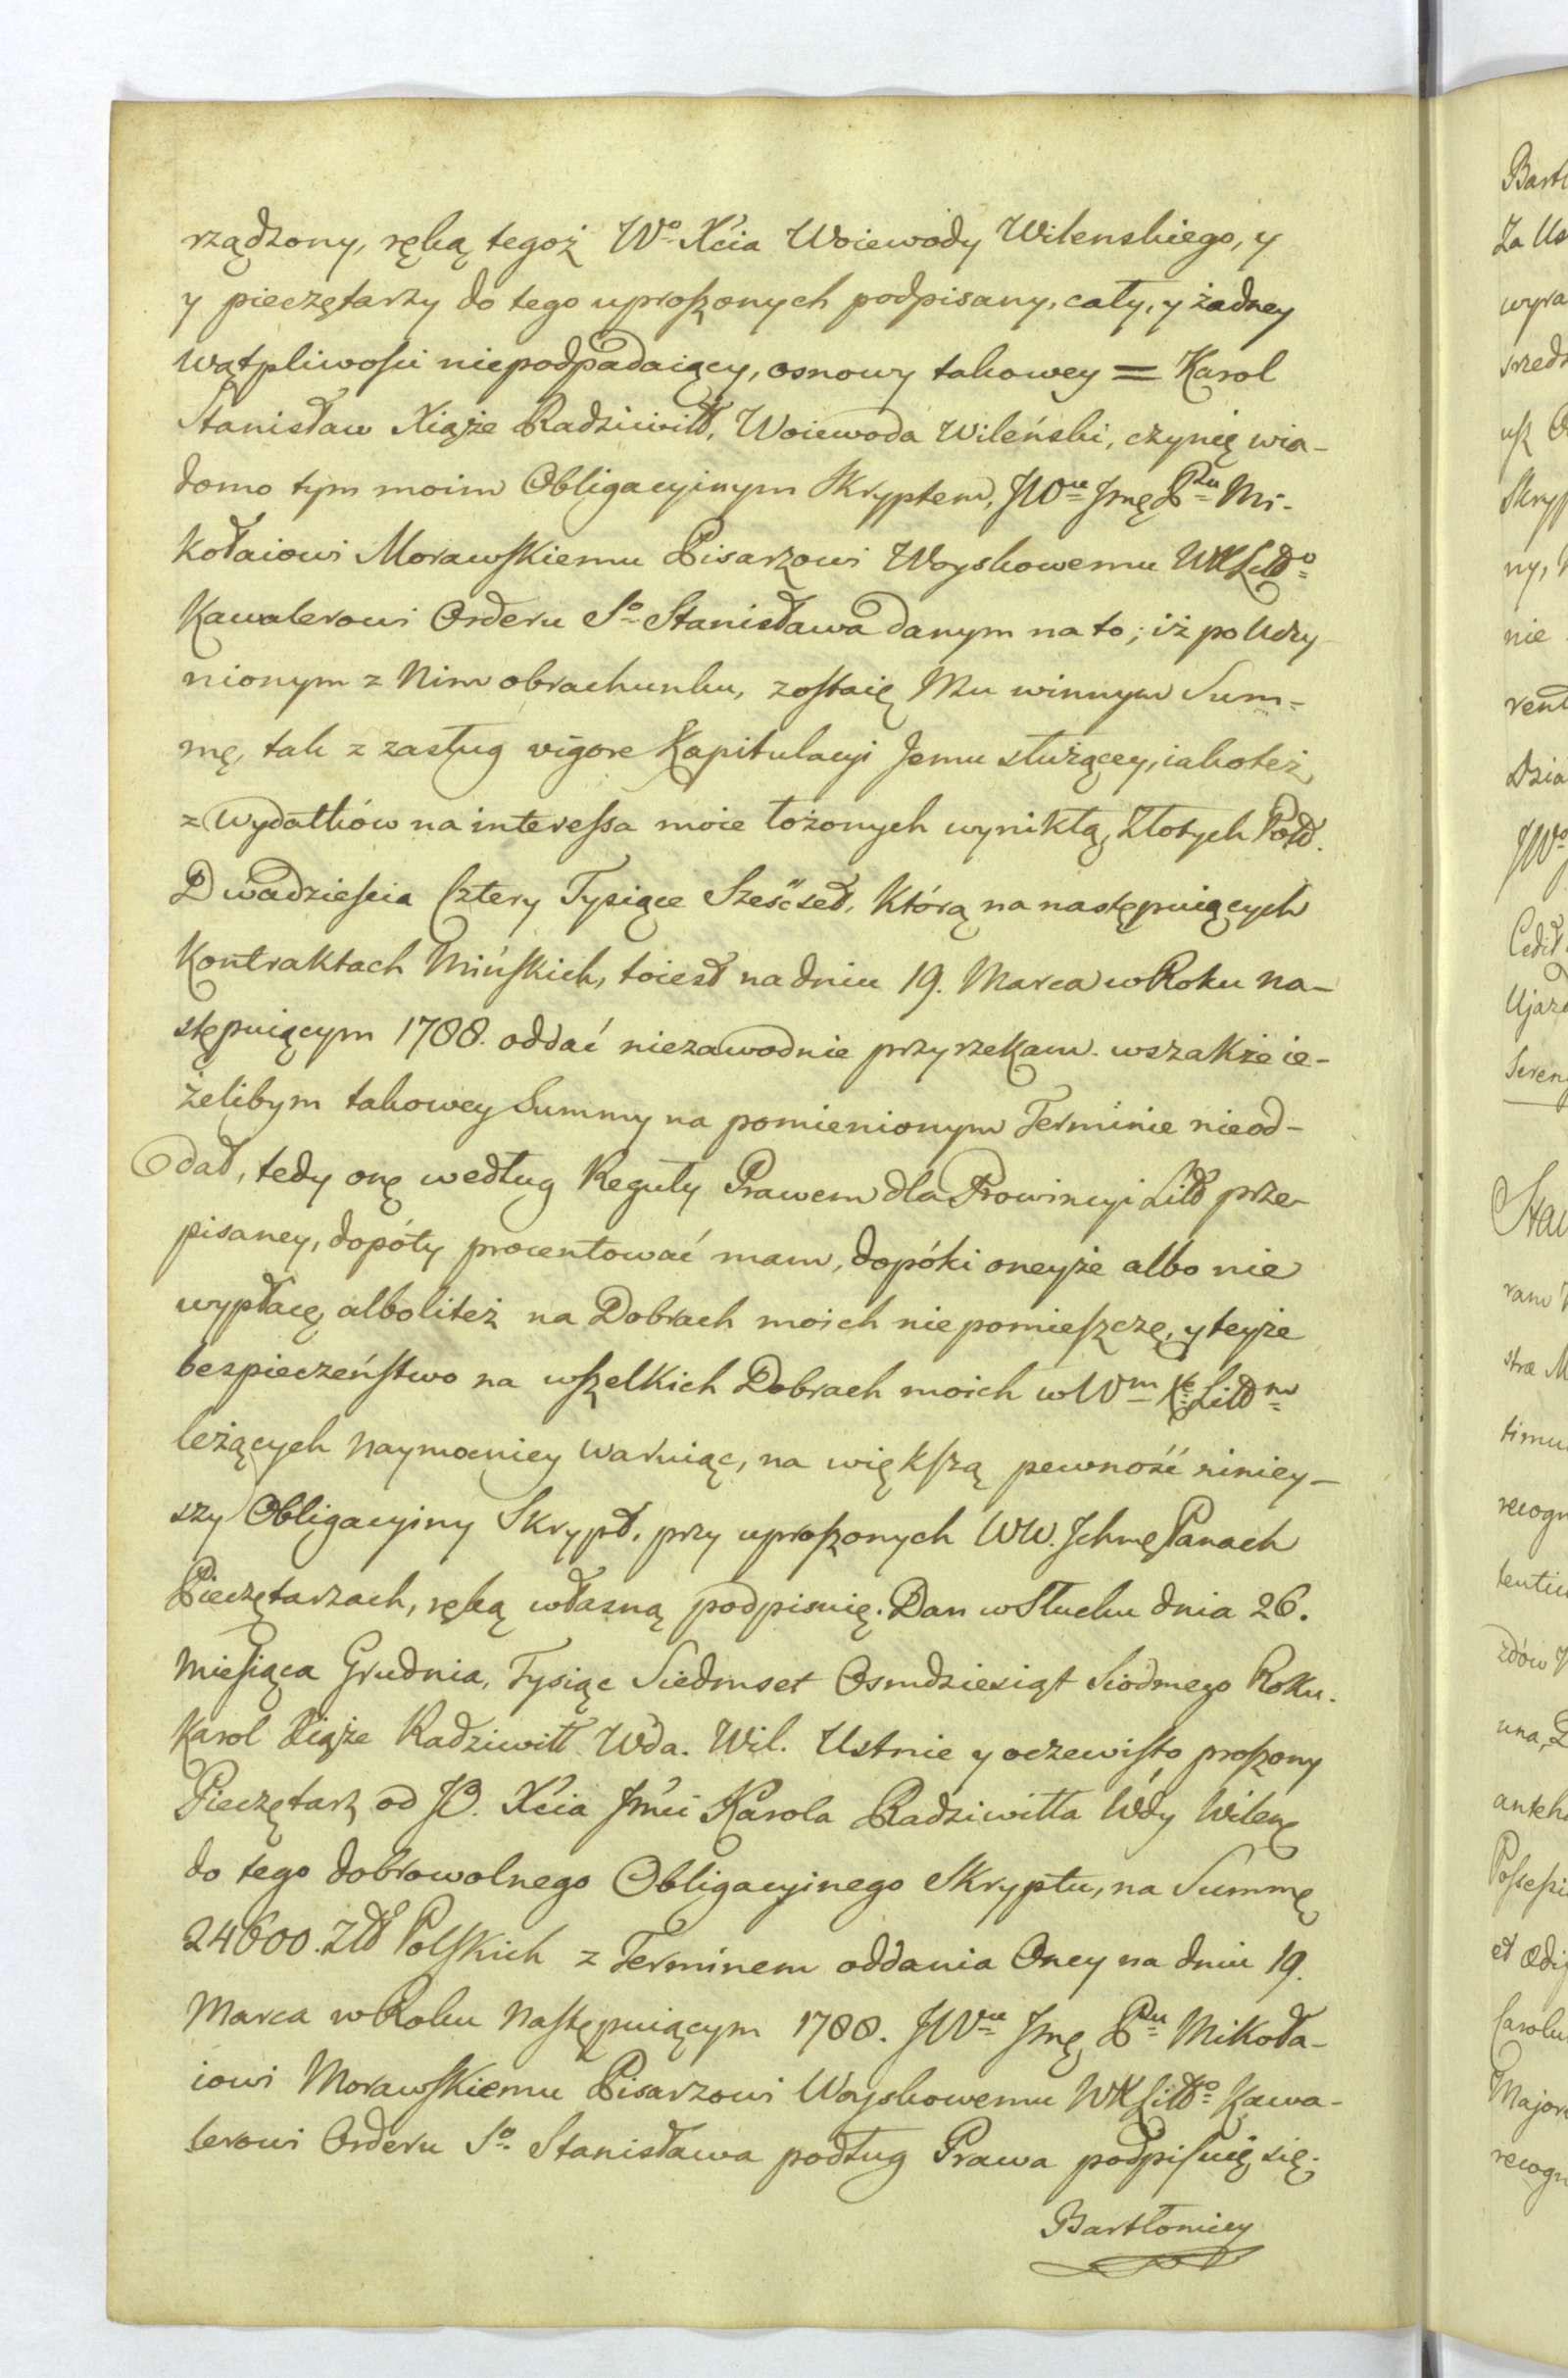 rządzony, ręką tegoż Wo Xcia Woiewody Wilenskiego, y
y pieczętarzy do tego uproszonych podpisany, cały, y żadney
wątpliwości niepodpadaiący, osnowy takowey = Karol
Stanisław Xiąże Radziwiłł, Woiewoda Wileński, czynię wia-
domo tym moim Obligacyinym Skryptem, JWu Jmę Pnu Mi-
kołaiowi Morawskiemu Pisarzowi Woyskowemu WXLitto
Kawalerowi Orderu So Stanisława danym na to; iż po Uczy
nionym z Nim obrachunku, zostaię Mu winnym Sum-
mę, tak z zasług vigore Kapitulacyi Jemu służącey, iakoteż
z wydatków na interessa moie łożonych wynikłą, Złotych Pold.
Dwadzieścia Cztery Tysiące Sześćset, Którą na następuiących
Kontraktach Mińskich, toiest na dniu 19. Marca w Roku na-
stępuiącym 1788. oddać niezawodnie przyrzekam. wszakże ie-
żelibym takowey Summy na pomienionym Terminie nieod-
dał, tedy onę według Reguły Prawem dla Prowincyi Litt prze-
pisaney, dopóty procentować mam, dopóki oneyże albo nie
wypłacę, albo liteż na Dobrach moich nie pomieszczę, y teyże
bezpieczeństwo na wszelkich Dobrach moich w Wm X Littm
leżących naymocniey waruiąc, na większą pewność niniey-
szy Obligacyiny Skrypt, przy uproszonych WW. Jchmę Panach
Pieczętarzach, ręką własną podpisuię. Dan w Słucku dnia 26.
Miesiąca Grudnia, Tysiąc Siedmset Osmdziesiąt Siodmego Roku.
Karol Xiąże Radziwiłł Wda. Wil. Ustnie y oczewisto proszony
Pieczętarz od JO. Xcia Jmci Karola Radziwiłła Wdy Wileń
do tego dobrowolnego Obligacyinego Skryptu, na Summę
24600. Złł Polskich z Terminem oddania Oney na dniu 19.
Marca w Roku Następuiącym 1788. JWu Jmę Pnu Mikoła-
iowi Morawskiemu Pisarzowi Woyskowemu WXLitto Kawa-
lerowi Orderu So Stanisława podług Prawa podpisuię się.
Bartłomiey